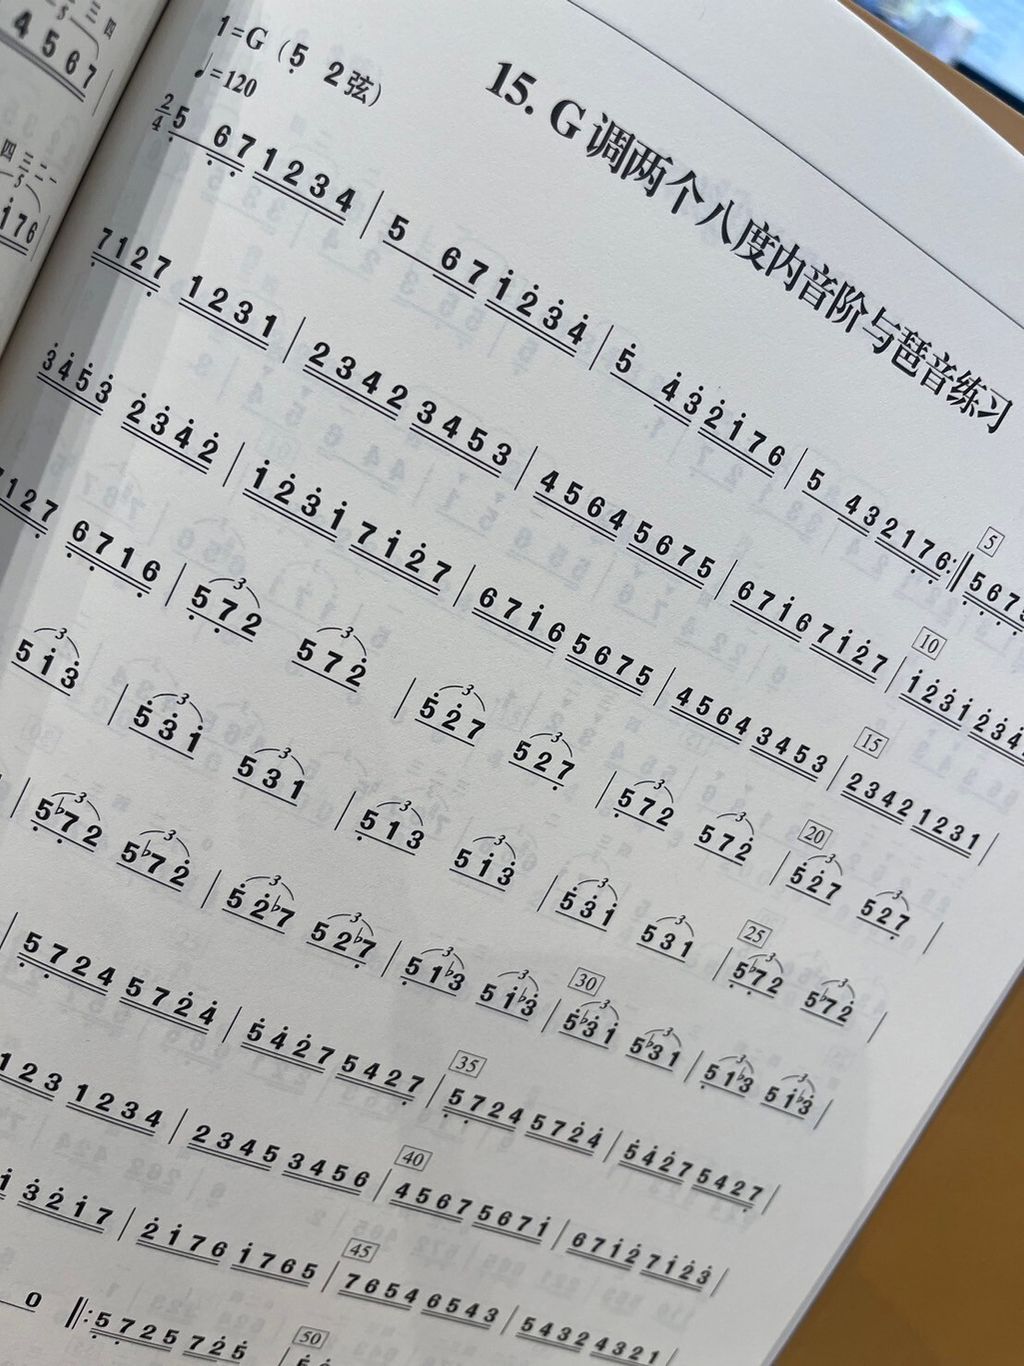 15. G 调两个八度内音阶与琶音练习
1=G (5̣ 2弦)
♩=120
2/4 5̣ 6̣ 7̣ 1 2 3 4 | 5 6 7 1̇ 2̇ 3̇ 4̇ | 5̇ 4̇ 3̇ 2̇ 1̇ 7 6 | 5 4 3 2 1 7̣ 6̣ :‖ 5 5̣ 6̣ 7̣
7̣ 1 2 7̣ 1 2 3 1 | 2 3 4 2 3 4 5 3 | 4 5 6 4 5 6 7 5 | 6 7 1̇ 6 7 1̇ 2̇ 7 | 10 1̇ 2̇ 3̇ 1̇ 2̇ 3̇ 4̇
3̇ 4̇ 5̇ 3̇ 2̇ 3̇ 4̇ 2̇ | 1̇ 2̇ 3̇ 1̇ 7 1̇ 2̇ 7 | 6 7 1̇ 6 5 6 7 5 | 4 5 6 4 3 4 5 3 | 15 2 3 4 2 1 2 3 1 |
1 2 7̣ 6̣ 7̣ 1 6̣ | 5̣ 7̣ 2 5 7 2̇ | 5̇ 2̇ 7 5 2 7̣ | 5̣ 7̣ 2 5 7 2̇ | 20 5̇ 2̇ 7 5 2 7̣ |
5 1̇ 3̇ | 5̇ 3̇ 1̇ 5 3 1 | 5̣ 1 3 5 1̇ 3̇ | 5̇ 3̇ 1̇ 5 3 1 | 25 5̣ ♭7̣ 2 5 ♭7 2̇ |
| 5̣ ♭7̣ 2 5 ♭7 2̇ | 5̇ 2̇ ♭7 5 2 ♭7̣ | 5̣ 1 ♭3 5 1̇ ♭3̇ | 30 5̇ ♭3̇ 1̇ 5 ♭3 1 | 5̣ 1 ♭3 5 1̇ ♭3̇ |
| 5̣ 7̣ 2 4 5 7 2̇ 4̇ | 5̇ 4̇ 2̇ 7 5 4 2 7̣ | 35 5̣ 7̣ 2 4 5 7 2̇ 4̇ | 5̇ 4̇ 2̇ 7 5 4 2 7̣ |
1 2 3 1 2 3 4 | 2 3 4 5 3 4 5 6 | 40 4 5 6 7 5 6 7 1̇ | 6 7 1̇ 2̇ 7 1̇ 2̇ 3̇ |
1̇ 3̇ 2̇ 1̇ 7 | 2̇ 1̇ 7 6 1̇ 7 6 5 | 45 7 6 5 4 6 5 4 3 | 5 4 3 2 4 3 2 1 |
0 ‖: 5̣ 7̣ 2 5 7 2̇ 5̇ | 50
三 四
5
4 5 6 7
四 三 二
5
1̇ 7 6